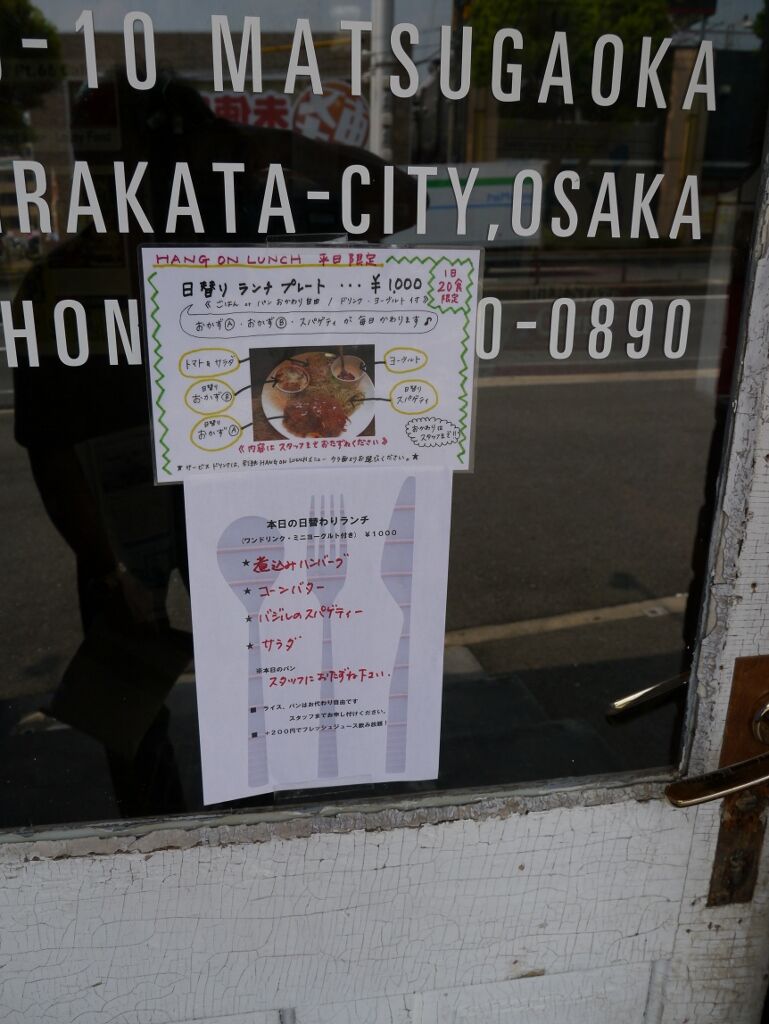 -10 MATSUGAOKA
RAKATA-CITY,OSAKA
HON 0-0890
HANG ON LUNCH 平日限定
日替り ランチ プレート ・・・ ¥1,000
1日
20食
限定
《ごはん or パン おかわり自由 / ドリンク・ヨーグルト付き》
おかずⒶ・おかずⒷ・スパゲティ が 毎日 かわります♪
トマト&サラダ
ヨーグルト
日替り
おかずⒷ
日替り
スパゲティ
日替り
おかずⒶ
おかわりは
スタッフまで!!
《内容は スタッフまで おたずねください》
★サービスドリンクは、別紙 HANG ON LUNCHメニュー よりお選びください。★
本日の日替わりランチ
(ワンドリンク・ミニヨーグルト付き) ¥1000
★ 煮込みハンバーグ
★ コーンバター
★ バジルのスパゲティー
★ サラダ
※本日のパン
スタッフにおたずね下さい.
■ ライス、パンはお代わり自由です
スタッフまでお申し付けください。
■ +200円でフレッシュジュース飲み放題!